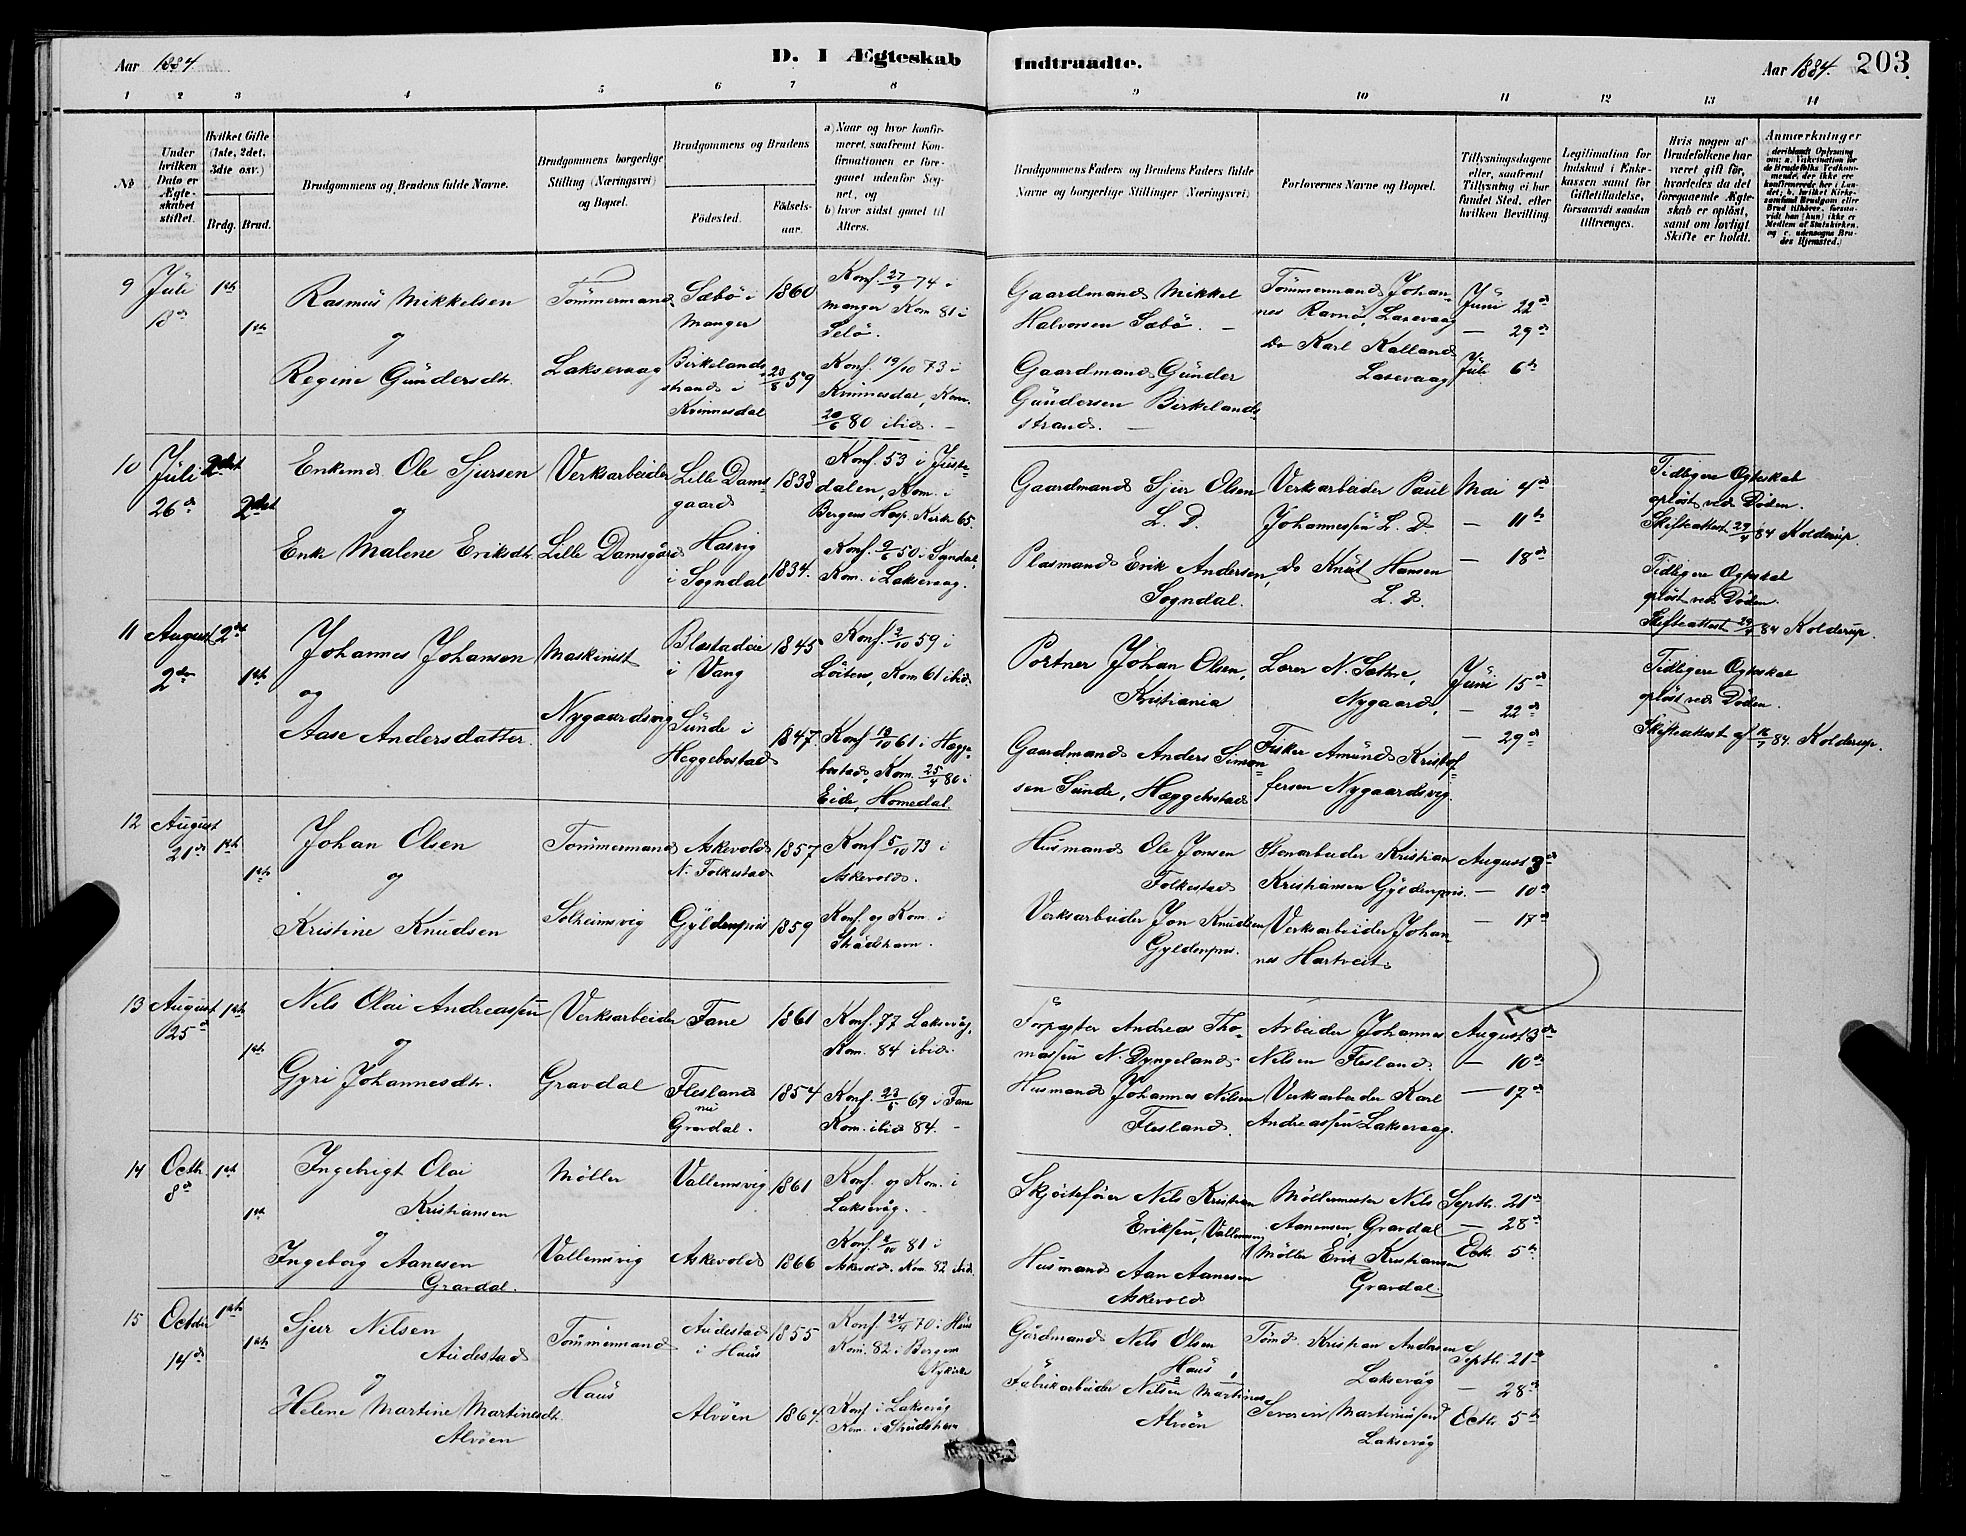 Aar 1884.
D. I Ægteskab
Indtraadte.
Aar 1884.
203
1 2 3 4 5 6 7 8 9 10 11 12 13 14
No
Under hvilken Dato er Ægteskabet stiftet.
Hvilket Gifte (1ste, 2det, 3die osv.)
Brdg. Brud.
Brudgommens og Brudens fulde Navne.
Brudgommens borgerlige Stilling (Næringsvei) og Bopæl.
Brudgommens og Brudens
Fødested.
Fødselsaar.
a) Naar og hvor konfirmeret, saafremt Konfirmationen er foregaaet udenfor Sognet, og
b) hvor sidst gaaet til Alters.
Brudgommens Faders og Brudens Faders fulde Navne og borgerlige Stillinger (Næringsvei)
Forlovernes Navne og Bopæl.
Tillysningsdagene eller, saafremt Tillysning ei har fundet Sted, efter hvilken Bevilling.
Legitimation for Indskud i Enkekassen samt for Giftetilladelse, forsaavidt saadan tiltrænges.
Hvis nogen af Brudefolkene har været gift før, hvorledes da det foregaaende Ægteskab er opløst, samt om lovligt Skifte er holdt.
Anmærkninger
9 Juli 18de 1ste 1ste
Rasmus Mikkelsen
og
Regine Gundersdtr.
Tömmermand
Laksevaag
Sæbö i Manger
1860
Konf. 27/9 74 i Manger Kom 81 i Selö.
Birkelandsstrand i Kvinnesdal
23/8 59
Konf. 19/10 73 i Kvinnesdal, Kom. 20/6 80 ibid.
Gaardmand Mikkel Halvorsen Sæbö.
Gaardmand Gunder Gundersen Birkelandsstrand.
Tömmermand Johannes Ravnö, Laxevaag
do Karl Kalland Laxevaag
Juni 22de
— 29de
Juli 6te
10 Juli 26de 2det 2det
Enkemd Ole Sjursen
og
Enke Malene Eriksdtr.
Verksarbeider
Lille Damsgård
Lille Damsgaard
1838
Konf. 53 i Justedalen, Kom. i Bergens Hosp. Kirke 65.
Hasvig i Sogndal
1834.
Konf. 9/6 50 i Sogndal, Kom. i Laksevaag.
Gaardmand Sjur Olsen L. D.
Plasmand Erik Andersen, Sogndal.
Verksarbeider Paul Johannessen L. D.
do Knut Hansen L. D.
Mai 4de
— 11te
— 18de
Tidligere Ægteskab opløst ved Døden.
Skifteattest 29/4 84 Kolderup.
Tidligere Ægteskab opløst ved Døden.
Skifteattest 29/4 84 Kolderup.
11 August 2den 2det 1ste
Johannes Johansen
og
Aase Andersdatter.
Maskinist
Nygaardsvig
Blæstadeie i Vang
1845
Konf. 2/10 59 i Löiten, Kom 61 ibid.
Sunde i Heggebostad
1847
Konf 13/10 61 i Heggebostad, Kom. 25/4 80 i Eide, Homedal.
Portner Johan Olsen, Kristiania
Gaardmand Anders Simonsen Sunde, Hæggebostad
Lærer N. Sætre, Nygaard,
Fisker Amund Kristoffersen Nygaardsvig.
Juni 15de
— 22de
— 29de
Tidligere Ægteskab opløst ved Døden.
Skifteattest af 16/7 84. Kolderup.
12 August 21de 1ste 1ste
Johan Olsen
og
Kristine Knudsen
Tömmermand
Solheimsvig
Askevold N. Folkestad
1857
Konf 5/10 73 i Askevold.
Gyldenpris
1859
Konf. og Kom. i Skudshavn.
Husmand Ole Jonsen Folkestad
Verksarbeider Jon Knudsen Gyldenpris.
Stenarbeider Kristian Kristiansen Gyldenpris.
Verksarbeider Johannes Hartveit.
August 3de
— 10de
— 17de
13 August 25de 1ste 1ste
Nils Olai Andreassen
og
Gyri Johannesdtr.
Verksarbeider
Gravdal
Fane
1861
Konf. 77 Laksevåg, Kom. 84 ibid.
Flesland nu Gravdal.
1854
Konf. 23/5 69 i Fane Kom. ibid 84.
Forpagter Andreas Thomassen N. Dyngeland
Husmand Johannes Nilsen Flesland.
Arbeider Johannes Nilsen Flesland.
Verksarbeider Karl Andreassen Laksevaag.
August 3de
— 10de
— 17de
14 Octbr. 8de 1ste 1ste
Ingebrigt Olai Kristiansen
og
Ingeborg Aanesen Gravdal.
Möller
Vallemsvig
Vallemsvig
1861
Konf. og Kom. i Laksevåg.
Askevold
1866
Konf. 2/10 81 i Askevold. Kom 82 ibid.
Skjöitefører Nils Kristian Eriksen, Vallemsvig
Husmand Aan Aanesen Askevold
Möllermester Nils Aanensen, Gravdal
Möller Erik Kristiansen Gravdal.
Septbr. 21de
— 28de
Octr. 5te
15 October 14de 1ste 1ste
Sjur Nilsen Audestad
og
Helene Martine Martinesdtr. Alvöen
Tömmermand
Haus
Audestad i Haus
1855
Konf. 24/4 70 i Haus Kom. 82 i Bergens Nykirke
Alvöen
1864.
Konf i Laksevåg Kom. i Skudshavn
Gårdmand Nils Olsen Haus
Fabrikarbeider Nilsen Martines Alvöen
Tömd. Kristian Andersen Laksevåg
Severin Martinussen Laksevåg
Septbr. 21de
— 28de
Octbr. 5te